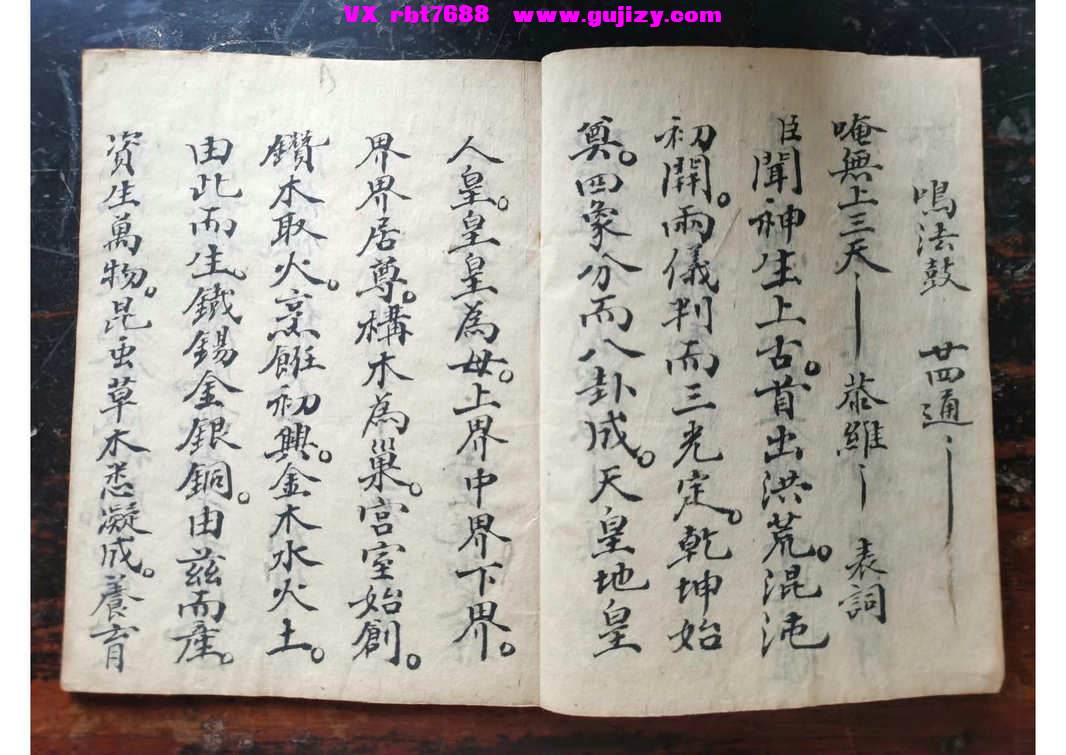 VX rbt7688 www.gujizy.com
鳴法鼓 廿四通
唵無上三天 恭維 表詞
臣聞神生上古。首出洪荒。混沌
初開。兩儀判而三光定。乾坤始
奠。四象分而八卦成。天皇地皇
人皇。皇皇為母。上界中界下界。
界界居尊。構木為巢。宮室始創。
鑽木取火。烹飪初興。金木水火土。
由此而生。鐵錫金銀銅。由茲而產。
資生萬物。昆虫草木悉凝成。養育